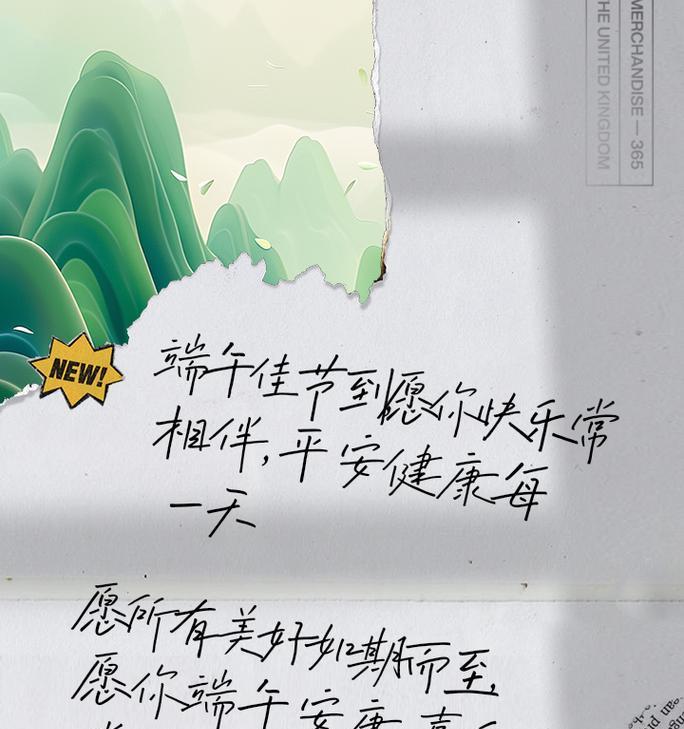 MERCHANDISE — 365
THE UNITED KINGDOM
NEW!
端午佳节到愿你快乐常
相伴,平安健康每
一天
愿所有美好如期而至,
愿你端午安康